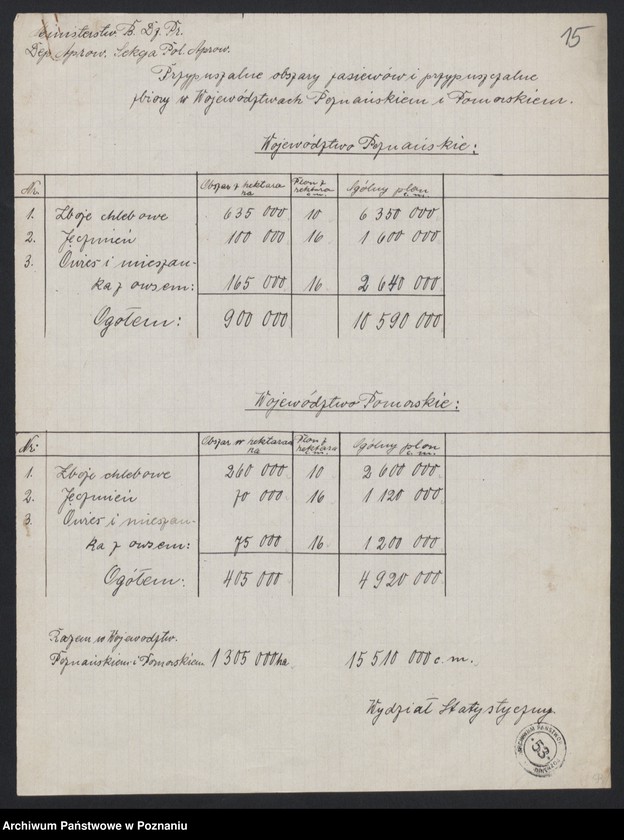 Ministerstw. B. Dz. Pr.
Dep. Aprow. Sekcja Pol. Aprow.
15
Przypuszczalne obszary zasiewów i przypuszczalne
zbiory w Województwach Poznańskiem i Pomorskiem.
Województwo Poznańskie:
Nr. Obszar z hektara Plon z hektara Ogólny plon
ha c.m. c.m.
1. Zboże chlebowe 635 000 10 6 350 000
2. Jęczmień 100 000 16 1 600 000
3. Owies i mieszan-
ka z owsem: 165 000 16 2 640 000
Ogółem: 900 000 10 590 000
Województwo Pomorskie:
Nr. Obszar w hektarach Plon z hektara Ogólny plon
ha c.m. c.m.
1. Zboże chlebowe 260 000 10 2 600 000
2. Jęczmień 70 000 16 1 120 000
3. Owies i mieszan-
ka z owsem: 75 000 16 1 200 000
Ogółem: 405 000 4 920 000
Razem w Wojewodztw.
Poznańskiem i Pomorskiem 1 305 000 ha 15 510 000 c. m.
Wydział Statystyczny.
ARCHIWUM PAŃSTWOWE
53
POZNAŃ
Archiwum Państwowe w Poznaniu